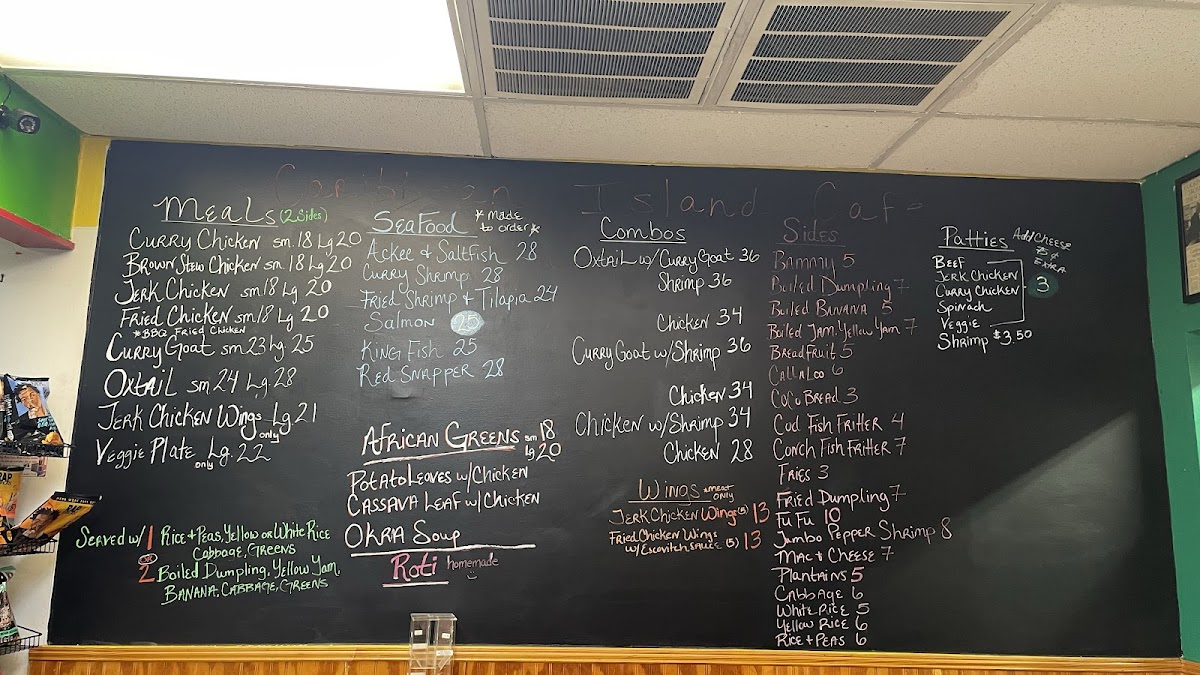 Caribbean Island Cafe
Meals (2 Sides)
Curry Chicken sm. 18 Lg 20
Brown Stew Chicken sm. 18 Lg 20
Jerk Chicken sm 18 Lg 20
Fried Chicken sm/18 Lg 20
*BBQ Fried Chicken
Curry Goat sm 23 Lg 25
Oxtail sm. 24 Lg. 28
Jerk Chicken Wings Lg 21
only
Veggie Plate Lg. 22
only
Served w/ 1 Rice + Peas, Yellow or White Rice
Cabbage, Greens
or
2 Boiled Dumpling, Yellow Yam,
Banana, Cabbage, Greens
SeaFood *made to order*
Ackee & Saltfish 28
Curry Shrimp 28
Fried Shrimp & Tilapia 24
Salmon 25
King Fish 25
Red Snapper 28
African Greens sm 18
Lg 20
Potato Leaves w/Chicken
Cassava Leaf w/Chicken
Okra Soup
Roti homemade
Combos
Oxtail w/Curry Goat 36
Shrimp 36
Chicken 34
Curry Goat w/Shrimp 36
Chicken 34
Chicken w/Shrimp 34
Chicken 28
Wings *meat only
Jerk Chicken Wings (5) 13
Fried Chicken Wings
w/Escovitch Sauce (5) 13
Sides
Bammy 5
Boiled Dumpling 7
Boiled Banana 5
Boiled Yam, Yellow Yam 7
Breadfruit 5
Callaloo 6
CoCo Bread 3
Cod Fish Fritter 4
Conch Fish Fritter 7
Fries 3
Fried Dumpling 7
Fu Fu 10
Jumbo Pepper Shrimp 8
Mac + Cheese 7
Plantains 5
Cabbage 6
White Rice 5
Yellow Rice 6
Rice + Peas 6
Patties Add/Cheese
Extra
Beef
Jerk Chicken
Curry Chicken 3
Spinach
Veggie
Shrimp $3.50